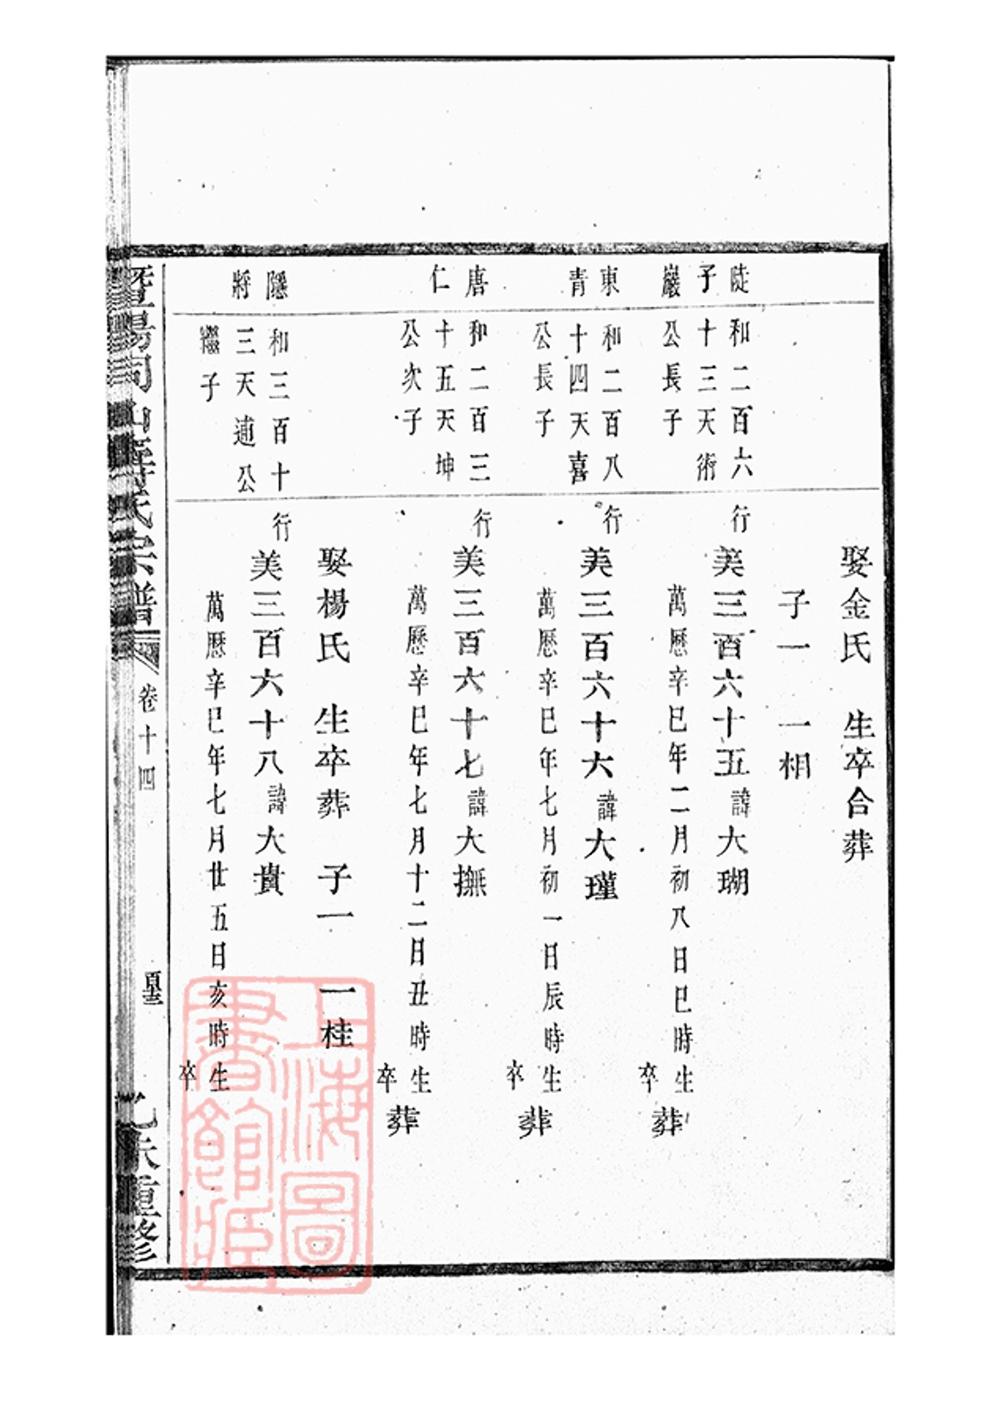 娶金氏　生卒合葬
子一　一相
陡子巖
和二百六十三天術公長子
行美三百六十五諱大瑚
萬曆辛巳年二月初八日巳時生
卒　葬
東青
和二百八十四天喜公長子
行美三百六十六諱大瑾
萬曆辛巳年七月初一日辰時生
卒　葬
唐仁
和二百三十五天坤公次子
行美三百六十七諱大撫
萬曆辛巳年七月十二日丑時生
卒　葬
娶楊氏　生卒葬　子一　一桂
隱將
和三百十三天逋公繼子
行美三百六十八諱大貴
萬曆辛巳年七月廿五日亥時生
卒
暨陽同山壽氏宗譜
卷十四
乙未重修
上海圖書館藏